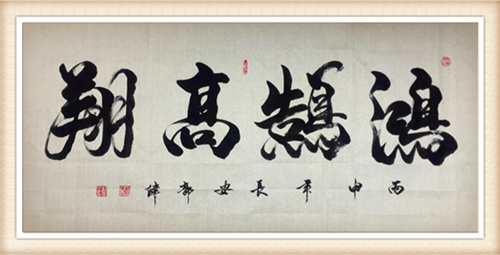 鴻鵠高翔
丙申年長安郭律